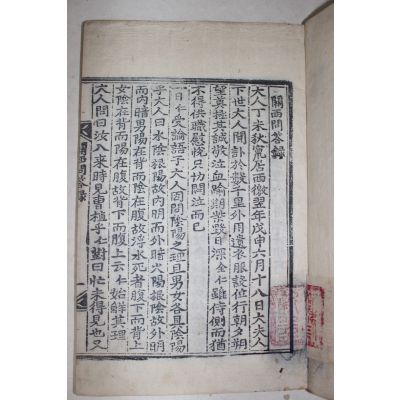 關西問答錄
大人丁未秋竄居西徼翌年戊申六月十八日大夫人
下世大人聞訃於數千里外用遺衣服設位行朝夕朔
望奠極其誠敬泣血踰朞柴毁日深全仁雖侍側而猶
不得供職慰悅只切悶泣而已
一日仁受論語于大人因問陰陽之理且男女各具陰陽
乎大人曰水陰故內明而外暗火陽故陰故外明
而內暗男陽在背而陰在腹故浮水死者腹下而背上
女陰在背而陽在腹故背下而腹上云仁始解其理
大人問曰汝入來時見曹植乎仁對曰忙未得見也又
關西問答錄
一